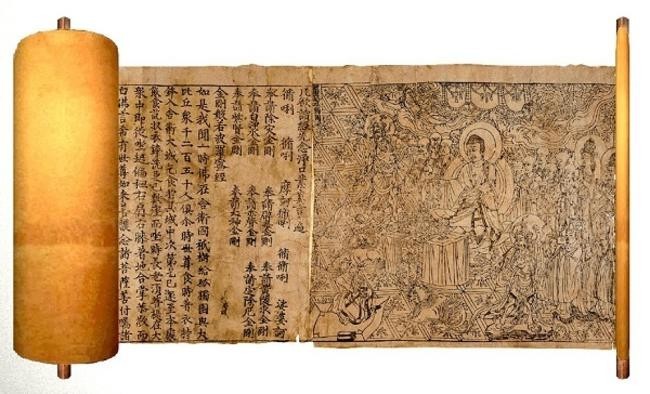 凡欲讀經先念淨口業真言一遍
脩唎 脩唎 摩訶脩唎 脩脩唎 娑婆訶
奉請除灾金剛 奉請辟毒金剛 奉請黃隨求金剛
奉請白淨水金剛 奉請赤聲金剛 奉請定除厄金剛
奉請紫賢金剛 奉請大神金剛
金剛般若波羅蜜經
如是我聞一時佛在舍衛國祇樹給孤獨園與大
比丘衆千二百五十人俱尒時世尊食時著衣持
鉢入舍衛大城乞食於其城中次第乞已還至本處
飯食訖収衣鉢洗足已敷座而坐時長老須菩提在大
衆中即從座起偏袒右肩右膝著地合掌恭敬而
白佛言希有世尊如來善護念諸菩薩善付囑諸